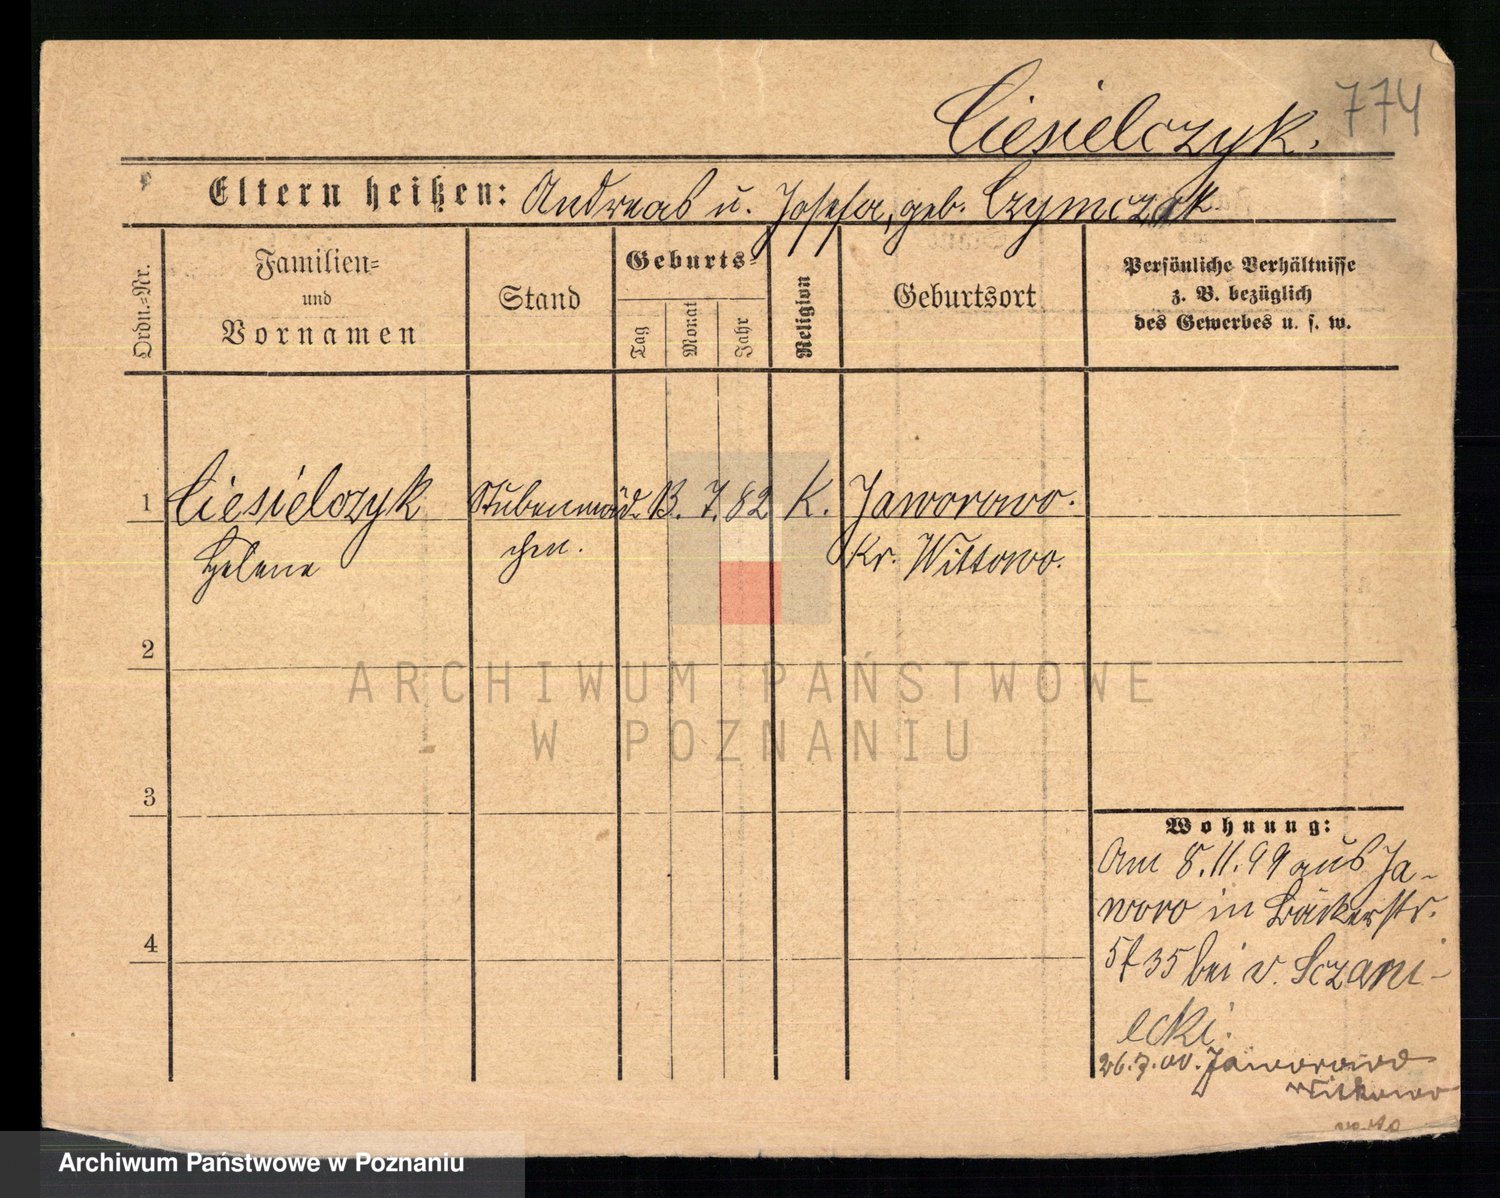 774
Ciesielczyk.
Eltern heißen: Andreas u. Josefa, geb. Czymczak
Ordn.-Nr.
Familien-
und
Vornamen
Stand
Geburts-
Tag
Monat
Jahr
Religion
Geburtsort
Persönliche Verhältnisse
z. B. bezüglich
des Gewerbes u. s. w.
1 Ciesielczyk Stubenmäd- 13. 7. 82 K. Jaworowo.
Helene chen. Kr. Wittowo.
2
3
4
Wohnung:
Am 8.11.99 aus Ja-
woro in Bäckerstr.
5f 35 bei v. Sczani-
ecki.
26.7.00. Jaworowo
Witkowo
ARCHIWUM PAŃSTWOWE
W POZNANIU
Archiwum Państwowe w Poznaniu